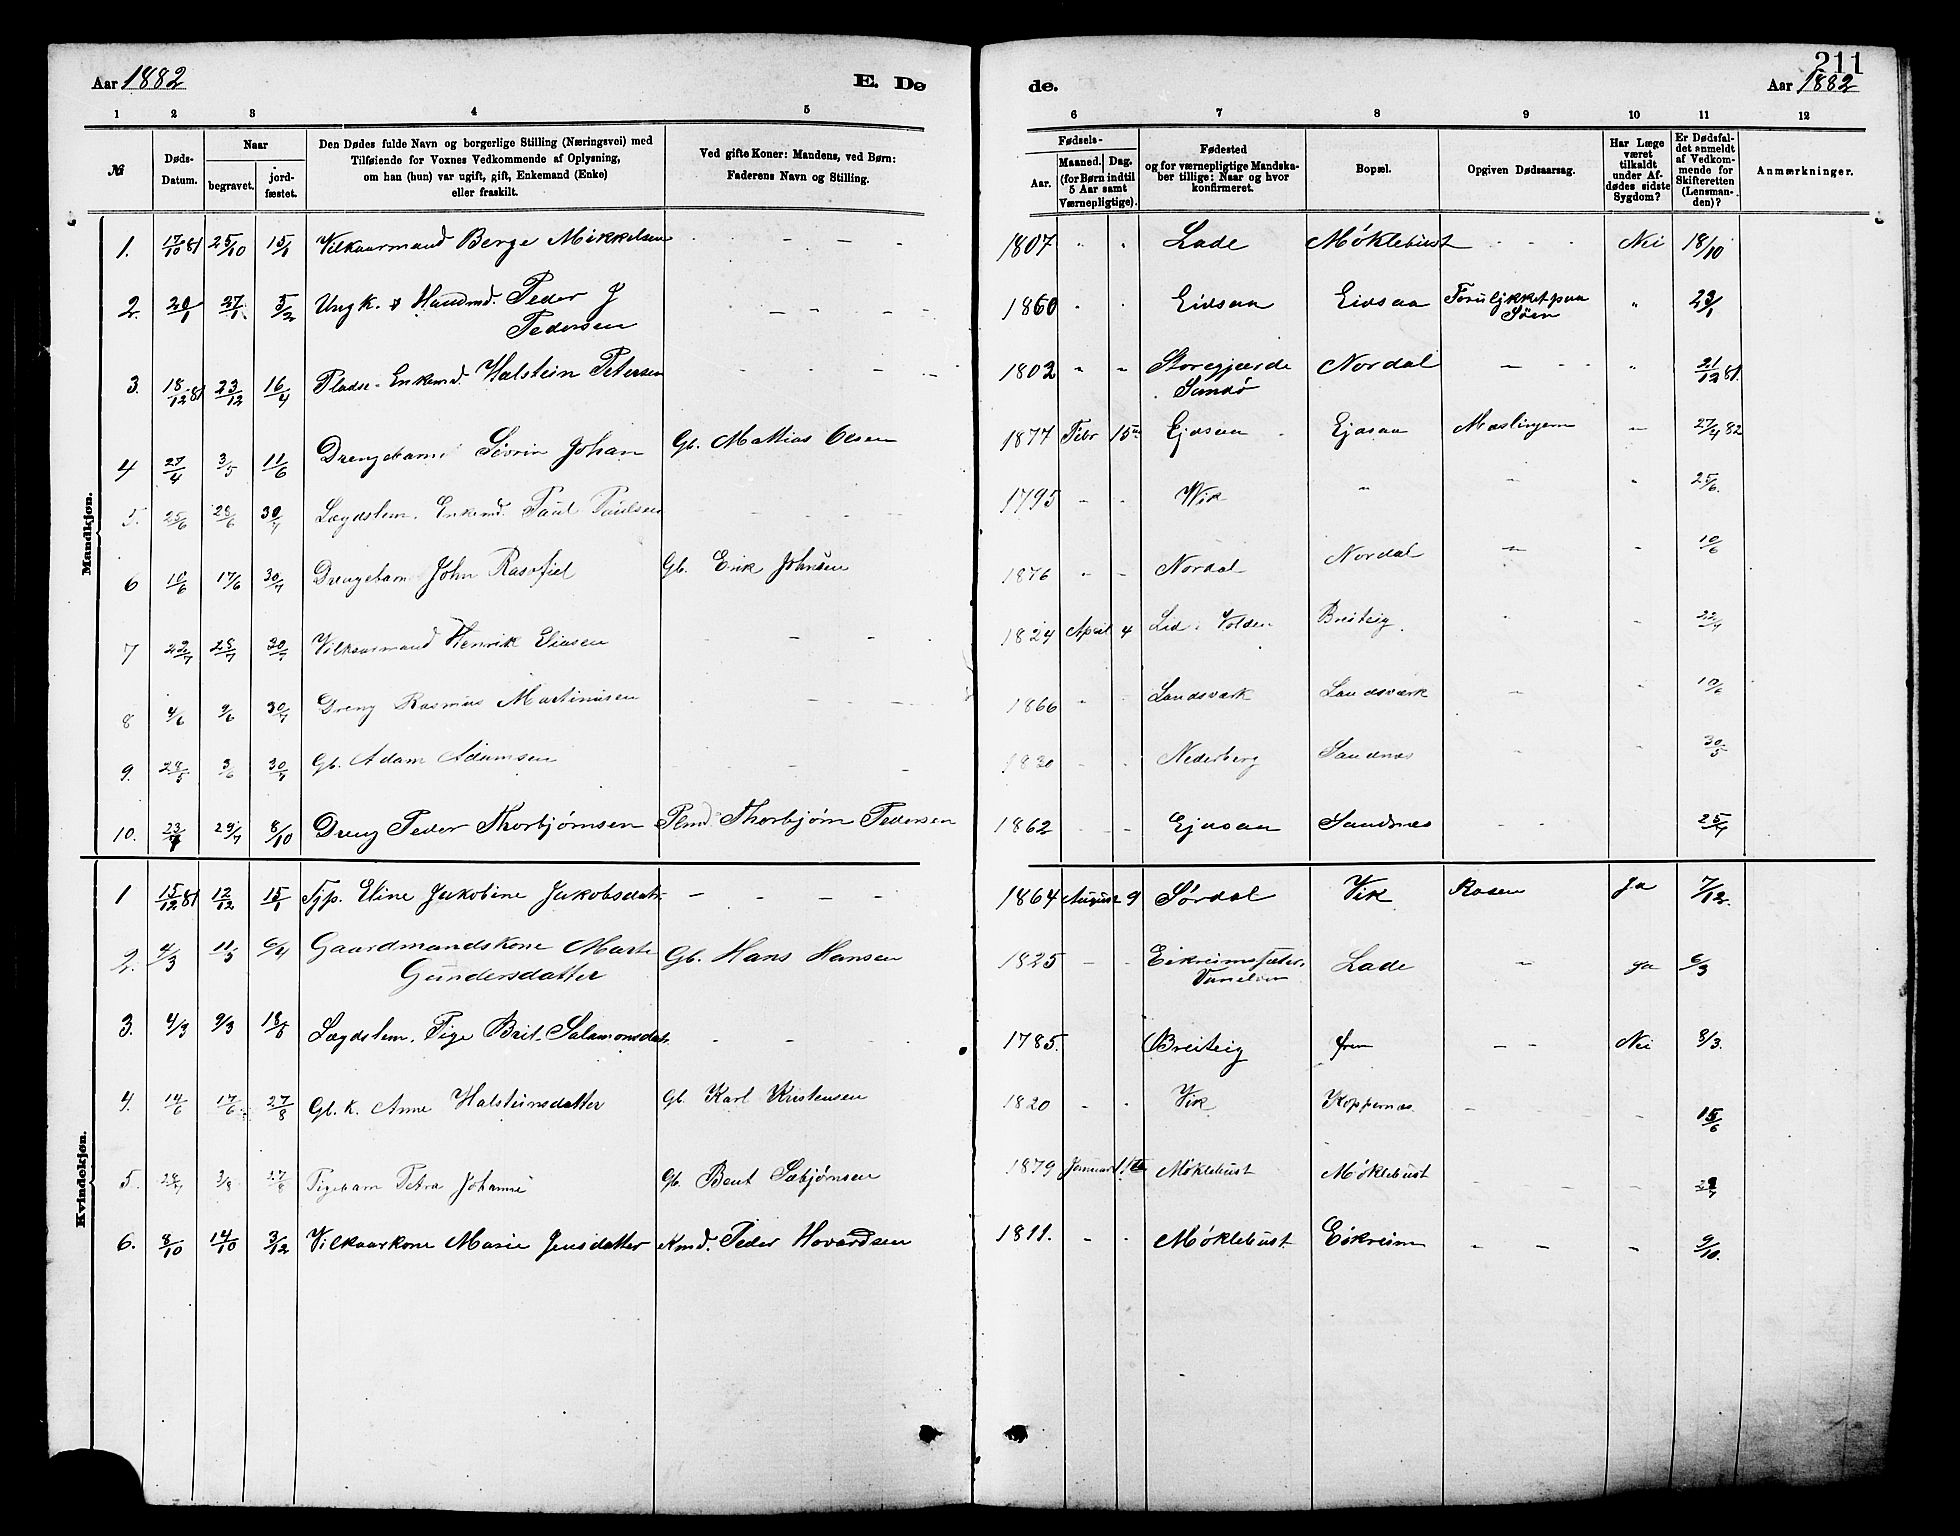 211
Aar 1882 E. Dø
de. Aar 1882
1 2 3 4 5
6 7 8 9 10 11 12
№ Døds-Datum. Naar begravet. jord-fæstet. Den Dødes fulde Navn og borgerlige Stilling (Næringsvei) med Tilføiende for Voxnes Vedkommende af Oplysning, om han (hun) var ugift, gift, Enkemand (Enke) eller fraskilt. Ved gifte Koner: Mandens, ved Børn: Faderens Navn og Stilling.
Fødsels- Aar. Maaned. Dag. (for Børn indtil 5 Aar samt Værnepligtige). Fødested og for værnepligtige Mandska-ber tillige: Naar og hvor konfirmeret. Bopæl. Opgiven Dødsaarsag. Har Læge været tilkaldt under Af-dødes sidste Sygdom? Er Dødsfal-det anmeldt af Vedkom-mende for Skifteretten (Lensman-den)? Anmærkninger.
Mandkjøn.
1. 17/10 81 25/10 15/1 Vilkaarmand Berge Mikkelsen - - - 1807 " " Lade Møklebust - - - Nei 18/10
2. 20/1 27/1 5/2 Ungk. & Huusmd. Peder J Pedersen - - - 1860 " " Eidsaa Eidsaa Forulykket paa Söen " 23/1
3. 18/12 81 23/12 16/4 Pladse-Enkemd. Halstein Petersen - - - 1802 " " Storegjærde Sandö Nordal - - - " 21/12 81.
4 27/4 3/5 11/6 Drengebarn Sivrin Johan Gb. Mattias Olsen 1877 Febr 15 Ejdsaa Ejdsaa Mæslingern - 27/4 82
5. 25/6 28/6 30/7 Lægdslem. Enkemd. Paul Paulsen - - - 1795 - - Wik " " " 25/6.
6 10/6 17/6 30/7 Drengebarn John Rasmus Gb. Erik Johnsen 1876 - - Nordal Nordal " - 10/6
7 22/7 28/7 30/7 Vilkaarmand Henrik Eliasen - - - 1824 April 4 Lid i Volden Breiteig - - 22/7
8 4/6 9/6 30/7 Dreng Rasmus Martinusen - - - 1866 - - Landsværk Landsværk - - 10/6
9. 28/5 3/6 30/7 Gb. Adam Adamsen - - - 1830 - - Nederberg Sandnæs - - 30/5
10. 23/7 29/7 8/10 Dreng Peder Thorbjørnsen Plmd Thorbjørn Pedersen 1862 - - Ejdsaa Sandsnæs - - 25/7
Kvindekjøn.
1 15/12 81 12/12 15/1 Tjp. Eline Jakobine Jakobsdatr. - - - - 1864 August 9 Sørdal Vik Rosen Ja 7/12.
2. 4/3 11/5 Gaardmandskone Marte Gundersdatter Gb. Hans Hansen 1825 - - Vanelven Lade " Ja 6/3
3. 4/3 9/3 18/6 Lægdslem. Pige Brit. Salamonsdat. - - - 1785. Breiteig - - Nei 8/3.
4. 14/6 17/6. 27/8 Gb. K. Anne Halsteinsdatter Gb. Karl Kristensen 1820 - - Vik Koppernæs. - - - 15/6
5. 28/7 3/8 27/8 Pigebarn Petra Johanne Gb. Bent Sæbjørnsen 1879 Januar Møklebust Møklebust - - - 29/7
6. 8/10 14/10 3/12 Vilkaarkone Marie Jensdatter Kmd. Peder Hovardsen 1811. - - Møklebust Eikreim - - - 9/10.